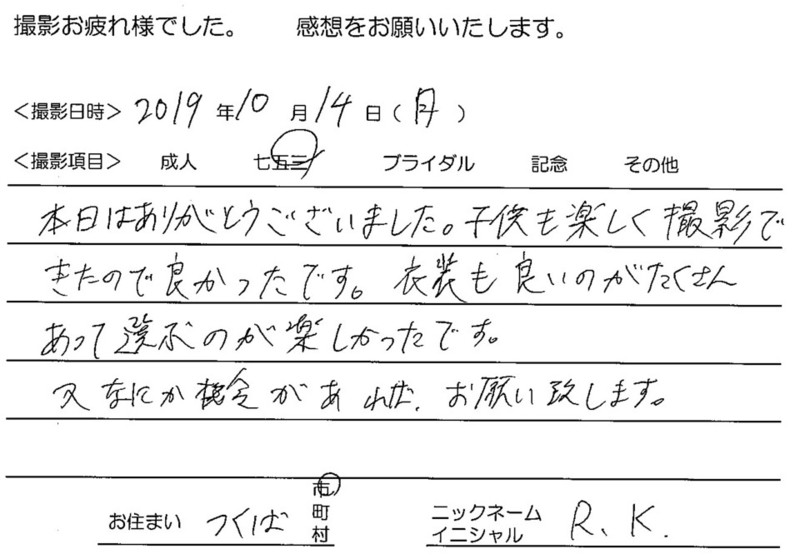 撮影お疲れ様でした。 感想をお願いいたします。
＜撮影日時＞ 2019年10月14日(月)
＜撮影項目＞ 成人 七五三 ブライダル 記念 その他
本日はありがとうございました。子供も楽しく撮影で
きたので良かったです。衣装も良いのがたくさん
あって選ぶのが楽しかったです。
又なにか機会があれば、お願い致します。
お住まい つくば 市町村 ニックネーム イニシャル R、K.